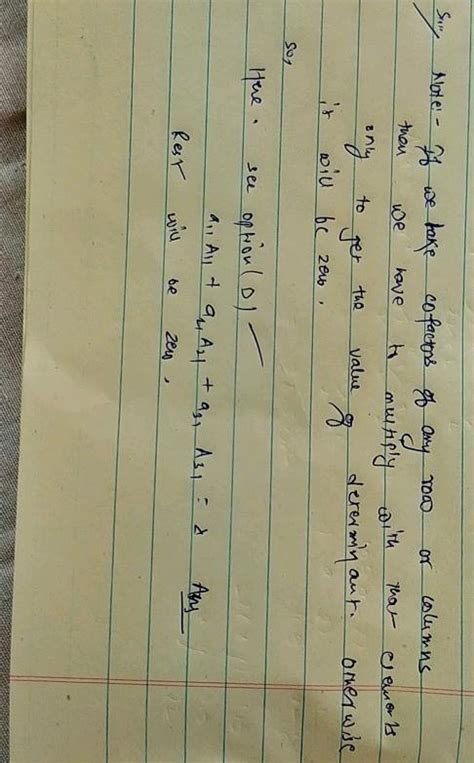 Sol// Note:- If we take cofactors of any row or columns
than we have to multiply with that elements
only to get the value of determinant. Otherwise
it will be zero.
so,
Here. see option (D) —
a₁₁A₁₁ + a₂₁A₂₁ + a₃₁ A₃₁ = Δ Ans
Rest will be zero.